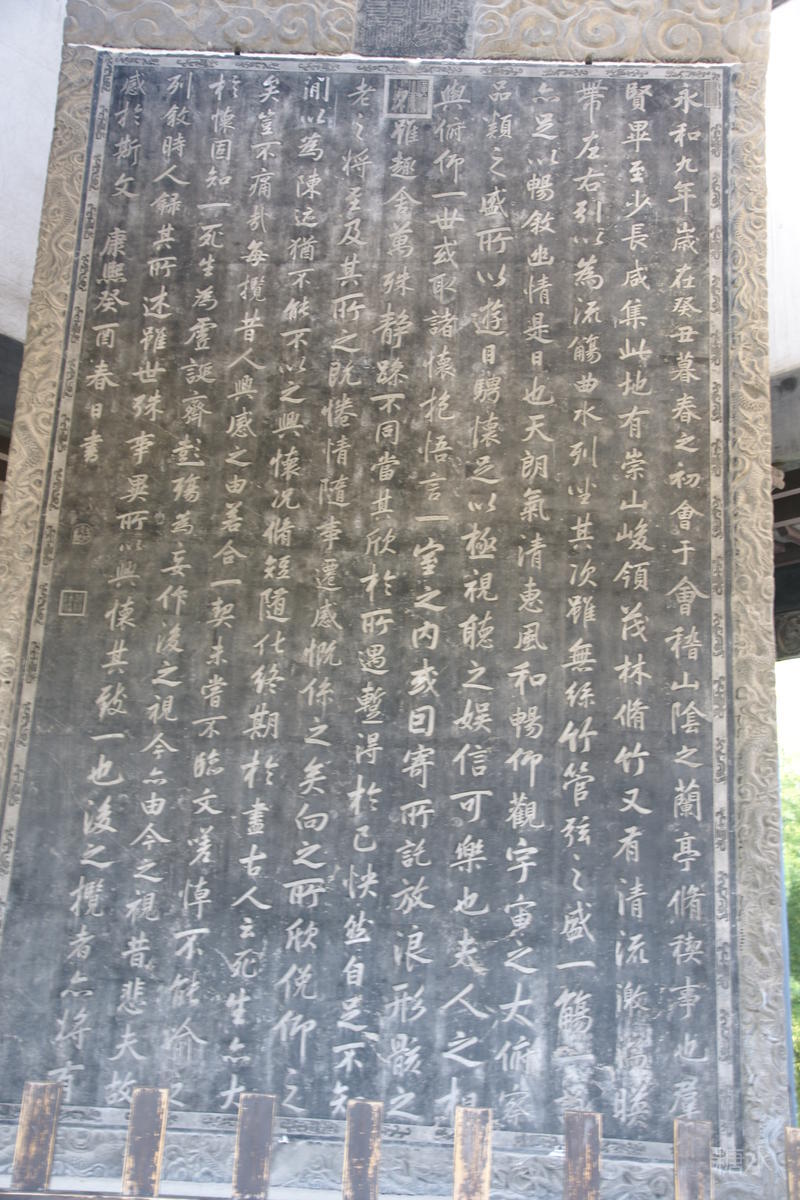 永和九年歲在癸丑暮春之初會于會稽山陰之蘭亭脩禊事也羣
賢畢至少長咸集此地有崇山峻領茂林脩竹又有清流激湍暎
帶左右引以為流觴曲水列坐其次雖無絲竹管弦之盛一觴一詠
亦足以暢敘幽情是日也天朗氣清惠風和暢仰觀宇宙之大俯察
品類之盛所以遊目騁懷足以極視聽之娛信可樂也夫人之相
與俯仰一世或取諸懷抱悟言一室之內或因寄所託放浪形骸之
外雖趣舍萬殊靜躁不同當其欣於所遇蹔得於己快然自足不知
老之將至及其所之既惓情隨事遷感慨係之矣向之所欣俛仰之
閒以為陳迹猶不能不以之興懷況脩短隨化終期於盡古人云死生亦大
矣豈不痛哉每攬昔人興感之由若合一契未嘗不臨文嗟悼不能喻之
於懷固知一死生為虛誕齊彭殤為妄作後之視今亦由今之視昔悲夫故
列敘時人錄其所述雖世殊事異所以興懷其致一也後之攬者亦將有
感於斯文 康熙癸酉春日書
糖水